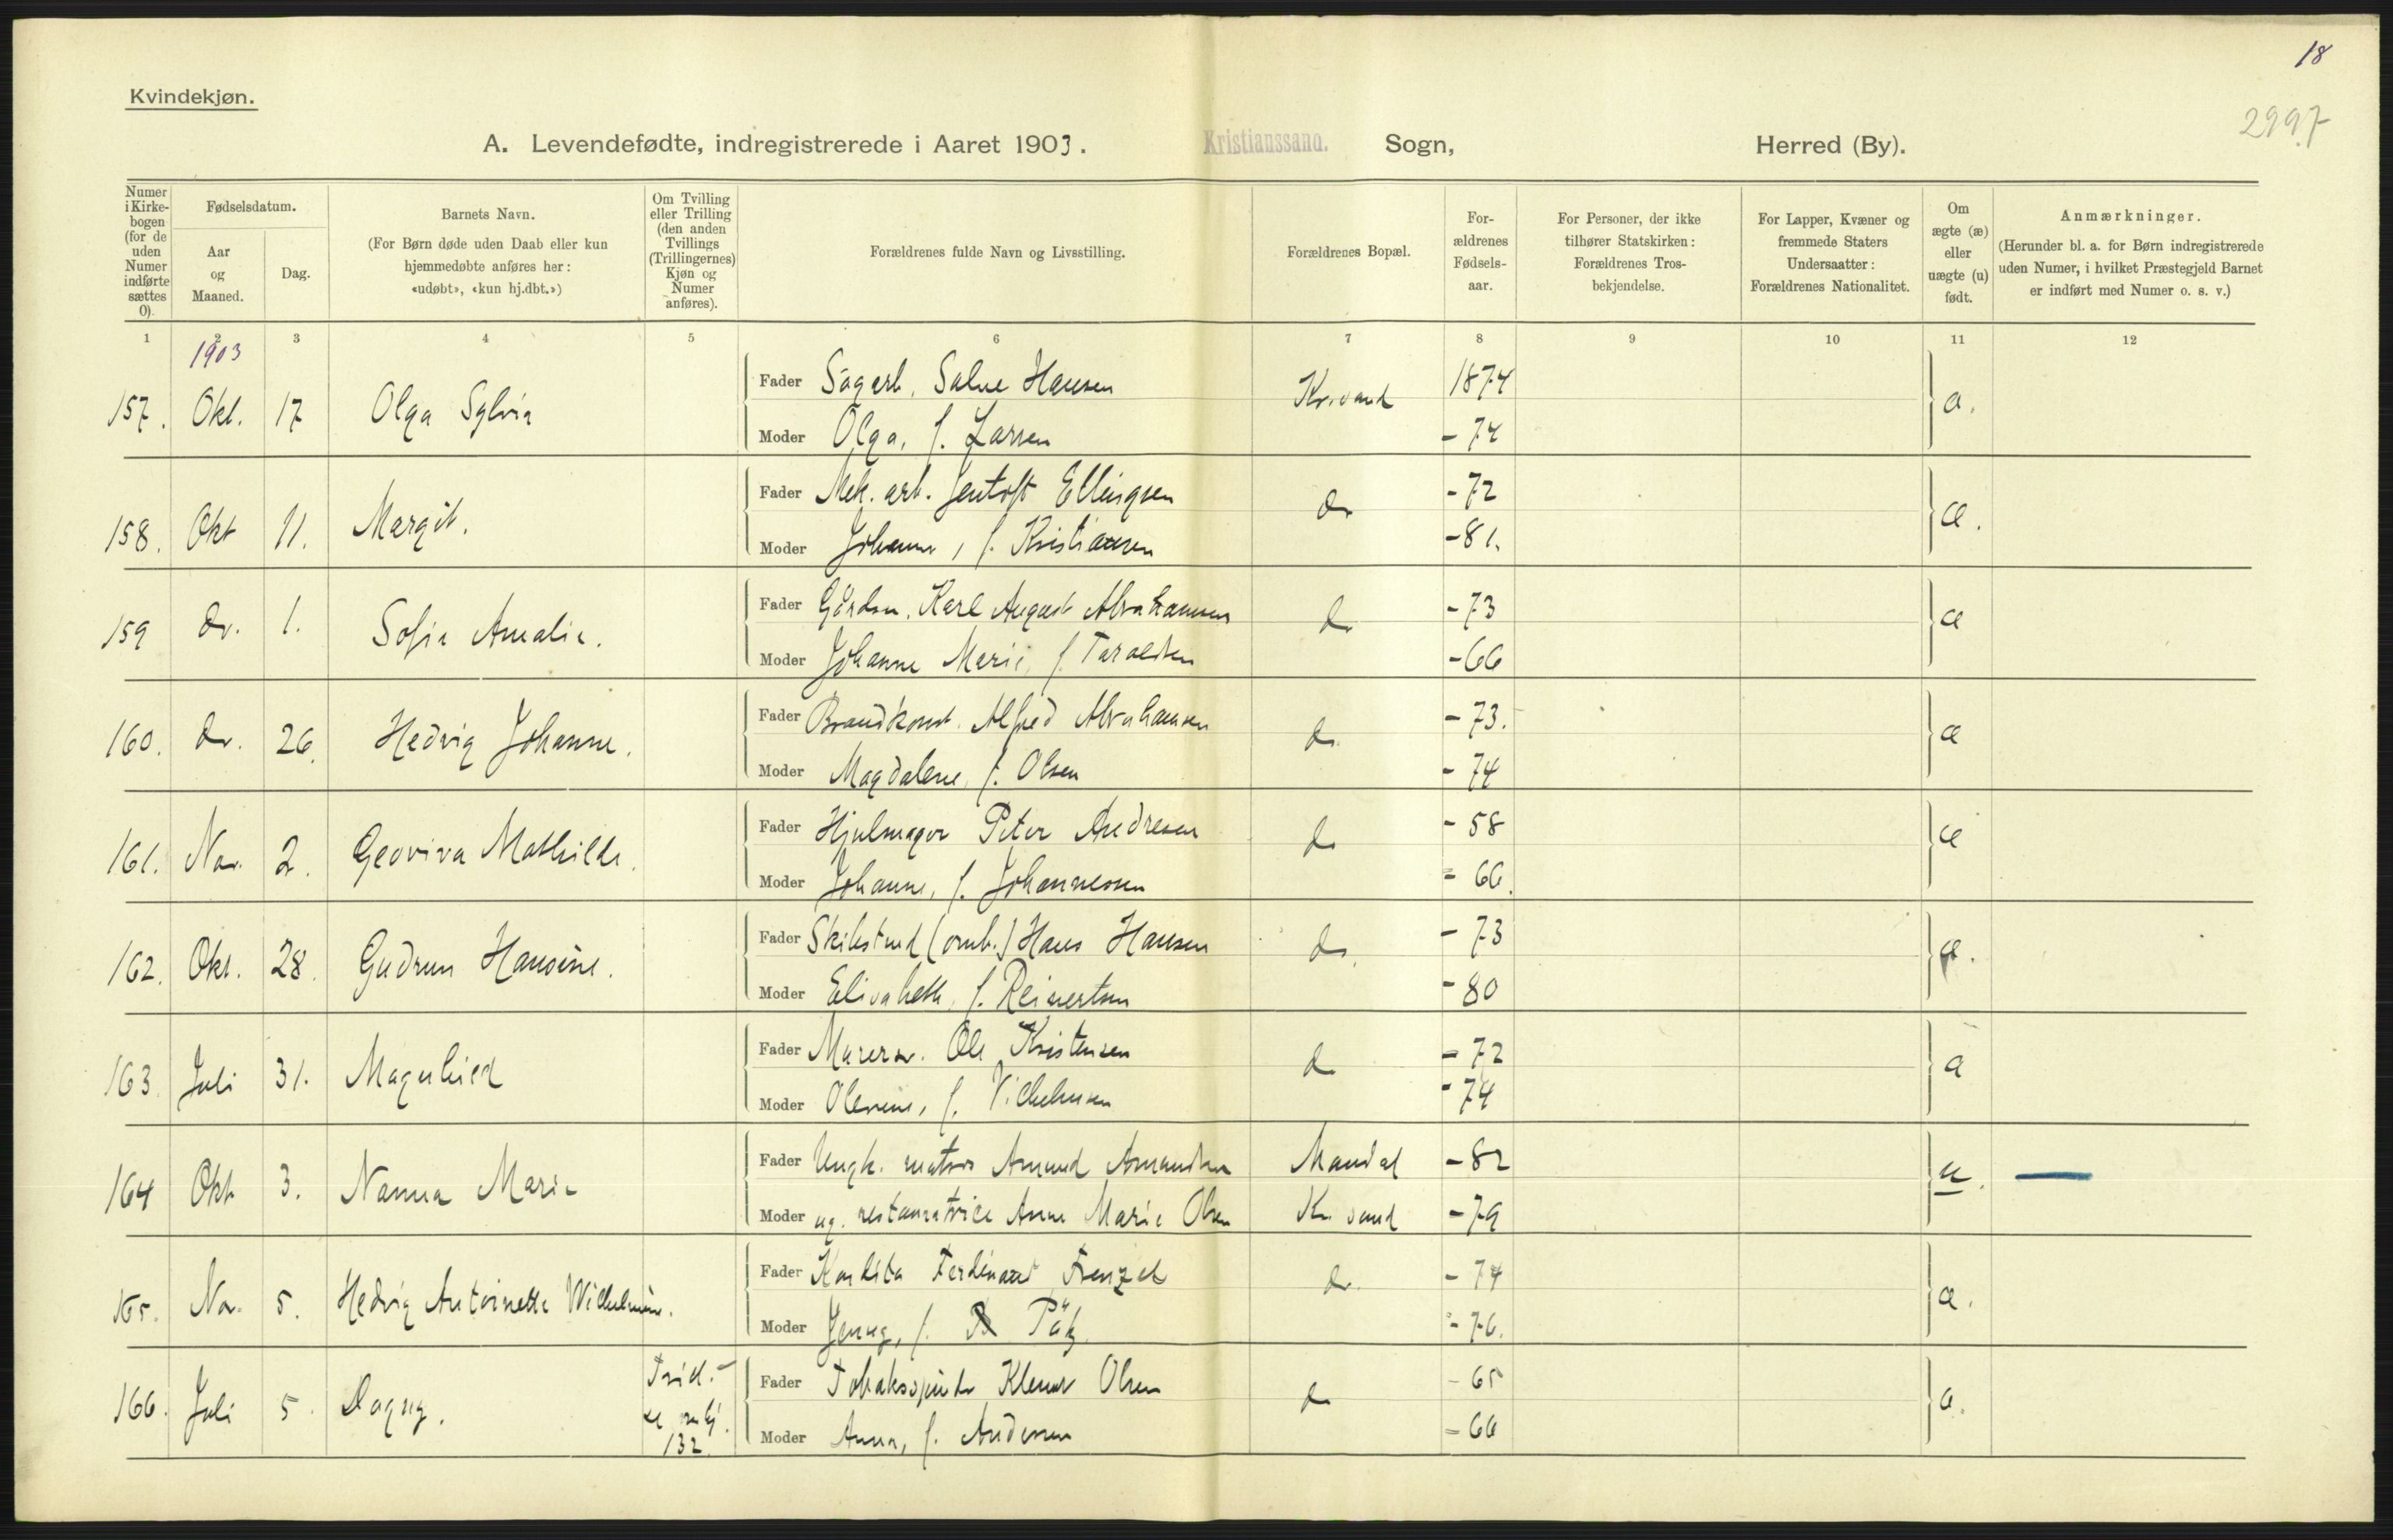 18
Kvindekjøn.
2997
A. Levendefødte, indregistrerede i Aaret 1903. Kristianssand. Sogn, Herred (By).
Numer i Kirke-bogen (for de uden Numer indførte sættes 0).
Fødselsdatum.
Aar og Maaned.
Dag.
Barnets Navn.
(For Børn døde uden Daab eller kun hjemmedøbte anføres her: «udøbt», «kun hj.dbt.»)
Om Tvilling eller Trilling (den anden Tvillings (Trillingernes) Kjøn og Numer anføres).
Forældrenes fulde Navn og Livsstilling.
Forældrenes Bopæl.
For-ældrenes Fødsels-aar.
For Personer, der ikke tilhører Statskirken: Forældrenes Tros-bekjendelse.
For Lapper, Kvæner og fremmede Staters Undersaatter: Forældrenes Nationalitet.
Om ægte (æ) eller uægte (u) født.
Anmærkninger.
(Herunder bl. a. for Børn indregistrerede uden Numer, i hvilket Præstegjeld Barnet er indført med Numer o. s. v.)
1 2 3 4 5 6 7 8 9 10 11 12
1903
157. Okt. 17 Olga Sylvia
Fader Sagarb. Salve Hansen Kr.sand 1874 æ.
Moder Olga, f. Larsen - 74
158. Okt 11. Margit.
Fader Mek. arb. Jentoft Ellingsen do - 72 æ.
Moder Johanne, f. Kristiansen - 81.
159 do. 1. Sofie Amalie.
Fader Karl August Abrahamsen do - 73 æ
Moder Johanne Marie, f. Taraldsen - 66
160. do. 26. Hedvig Johanne.
Fader Brandkonst. Alfred Abrahamsen do - 73. æ
Moder Magdalene, f. Olsen - 74
161. Nov. 2. Geoviva Mathilde.
Fader Hjulmager Peter Andresen do - 58 æ
Moder Johanne, f. Johannessen - 66.
162. Okt. 28. Gudrun Hansine.
Fader (omb.) Hans Hansen do. - 73 æ.
Moder Elisabeth, f. Reinertsen - 80
163. Juli 31. Magnhild
Fader Murersv. Ole Kristensen do - 72 æ
Moder Olevine, f. Vilhelmsen - 74
164 Okt 3. Nanna Marie
Fader Ungk. matros Amund Amundsen Mandal - 82 u.
Moder ug. restauratrice Anne Marie Olsen Kr sand - 79
165. Nov. 5. Hedvig Antoinette Wilhelmine.
Fader Ferdinand Frenzel do. - 74 æ.
Moder Jenny, f. Pätz - 76.
166. Juli 5. Dagny.
132.
Fader Klemet Olsen do - 65 æ.
Moder Anna, f. Andersen - 66